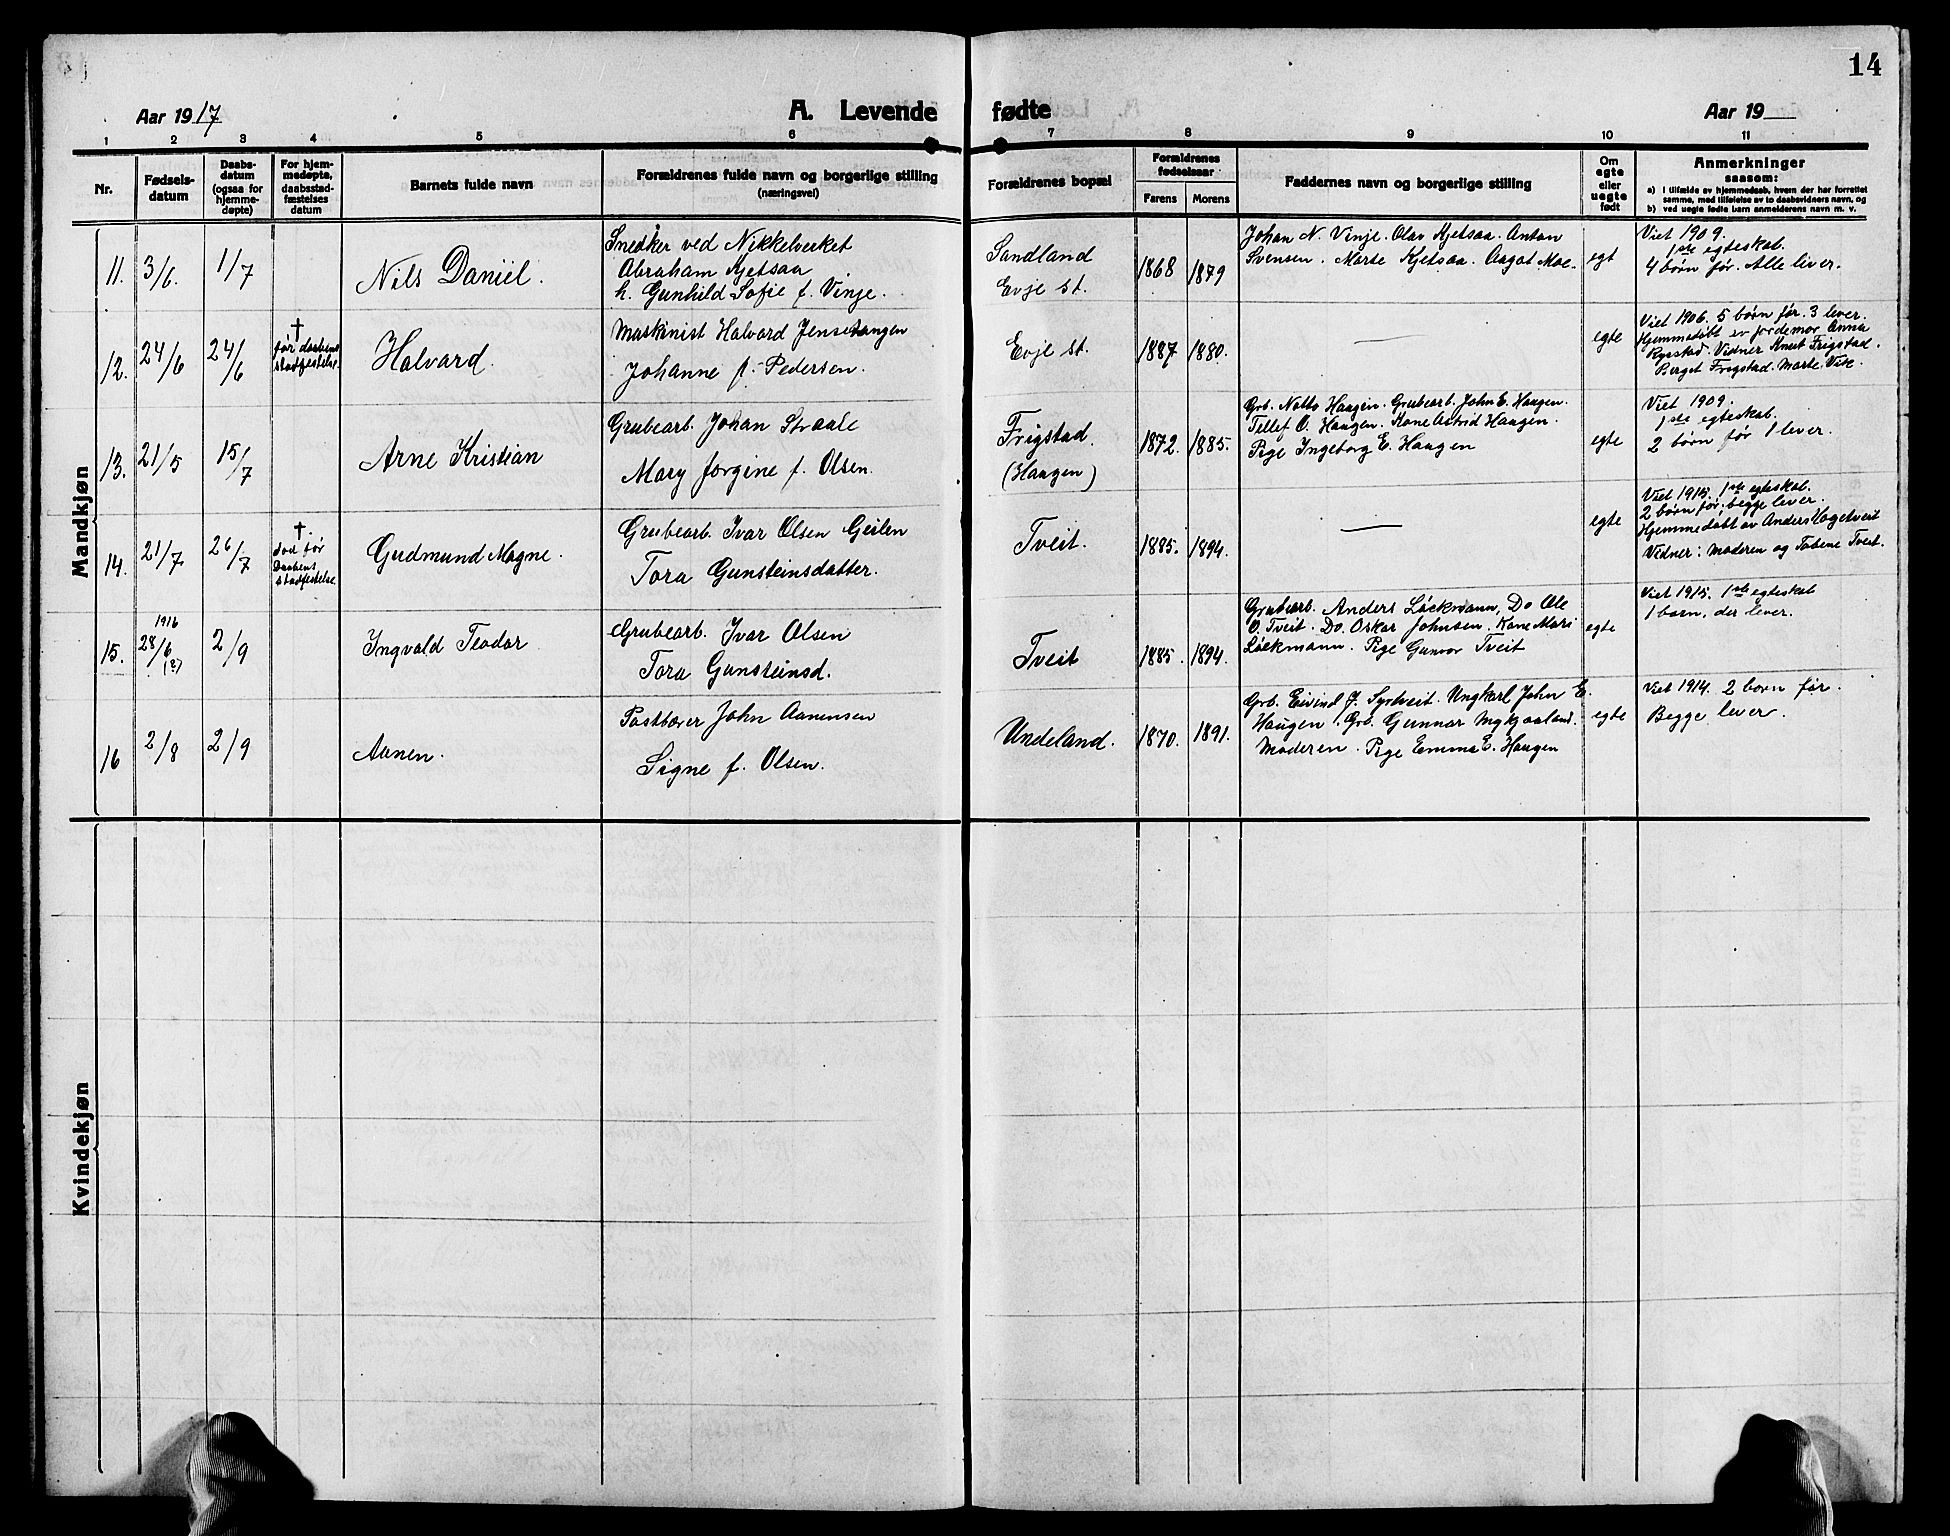 14
Aar 1917
A. Levende fødte
Aar 19
1 2 3 4 5 6 7 8 9 10 11
Nr.
Fødsels-
datum
Daabs-
datum
(ogsaa for
hjemme-
døpte)
For hjem-
medøpte,
daabsstad-
fæstelses
datum
Barnets fulde navn
Forældrenes fulde navn og borgerlige stilling
(næringsvei)
Forældrenes bopæl
Forældrenes
fødselsaar
Farens Morens
Faddernes navn og borgerlige stilling
Om
egte
eller
uegte
født
Anmerkninger
saasom:
a) i tilfælde av hjemmedaab, hvem der har forrettet
samme, med tilføielse av to daabsvidners navn, og
b) ved uegte fødte barn anmelderens navn m. v.
Mandkjøn
11. 3/6. 1/7
Nils Daniel.
Snedker ved Nikkelverket
Abraham Kjetsaa
h. Gunhild Sofie f. Vinje.
Sandland
Evje st.
1868 1879
Johan N. Vinje. Olav Kjetsaa. Anton
Svensen. Marte Kjetsaa. Aagot Moe.
egt
Viet 1909.
1ste egteskab.
4 børn før. Alle lever.
12. 24/6 24/6
†
før daabens
stadfestelse.
Halvard.
Maskinist Halvard Jensetangen
Johanne f. Pedersen.
Evje st.
1887 1880.
—
egte
Viet 1906. 5 børn før. 3 lever.
Hjemmedøbt av jordemor Anna
Rysstad. Vidner Knut Frigstad.
Berget Frigstad. Marte Vik.
13. 21/5 15/7
Arne Kristian
Grubearb. Johan Straale
Mary Jorgine f. Olsen.
Frigstad.
(Haugen)
1872. 1885.
Grb. Notto Haugen. Grubearb. John E. Haugen.
Tellef O. Haugen. Kone Astrid Haugen.
Pige Ingeborg E. Haugen
egte
Viet 1909.
1ste egteskab.
2 børn før 1 lever.
14. 21/7 26/7
†
død før
Daabens
stadfestelse
Gudmund Magne.
Grubearb. Ivar Olsen Geilen
Tora Gunsteinsdatter.
Tveit.
1885. 1894.
—
egte
Viet 1915. 1ste egteskab.
2 børn før. begge lever.
Hjemmedøbt av Anders Hagetveit
Vidner: Moderen og Tobene Tveit.
15. 1916 28/6 (?) 2/9
Ingvald Teodor
Grubearb. Ivar Olsen
Tora Gunsteinsd.
Tveit
1885. 1894.
Grubearb. Anders Løckmann, Do Ole
O. Tveit. Do. Oskar Johnsen. Kone Mari
Løckmann. Pige Gunvor Tveit
egte
Viet 1915. 1ste egteskab
1 barn, der lever.
16 2/8 2/9
Aanen.
Postbærer John Aanensen
Signe f. Olsen.
Undeland.
1870. 1891.
Grb. Eivind J. Syrtveit. Ungkarl John E.
Haugen. Grb. Gunnar Mykjaaland.
Moderen. Pige Emma E. Haugen
egte
Viet 1914. 2 børn før.
Begge lever.
Kvindekjøn